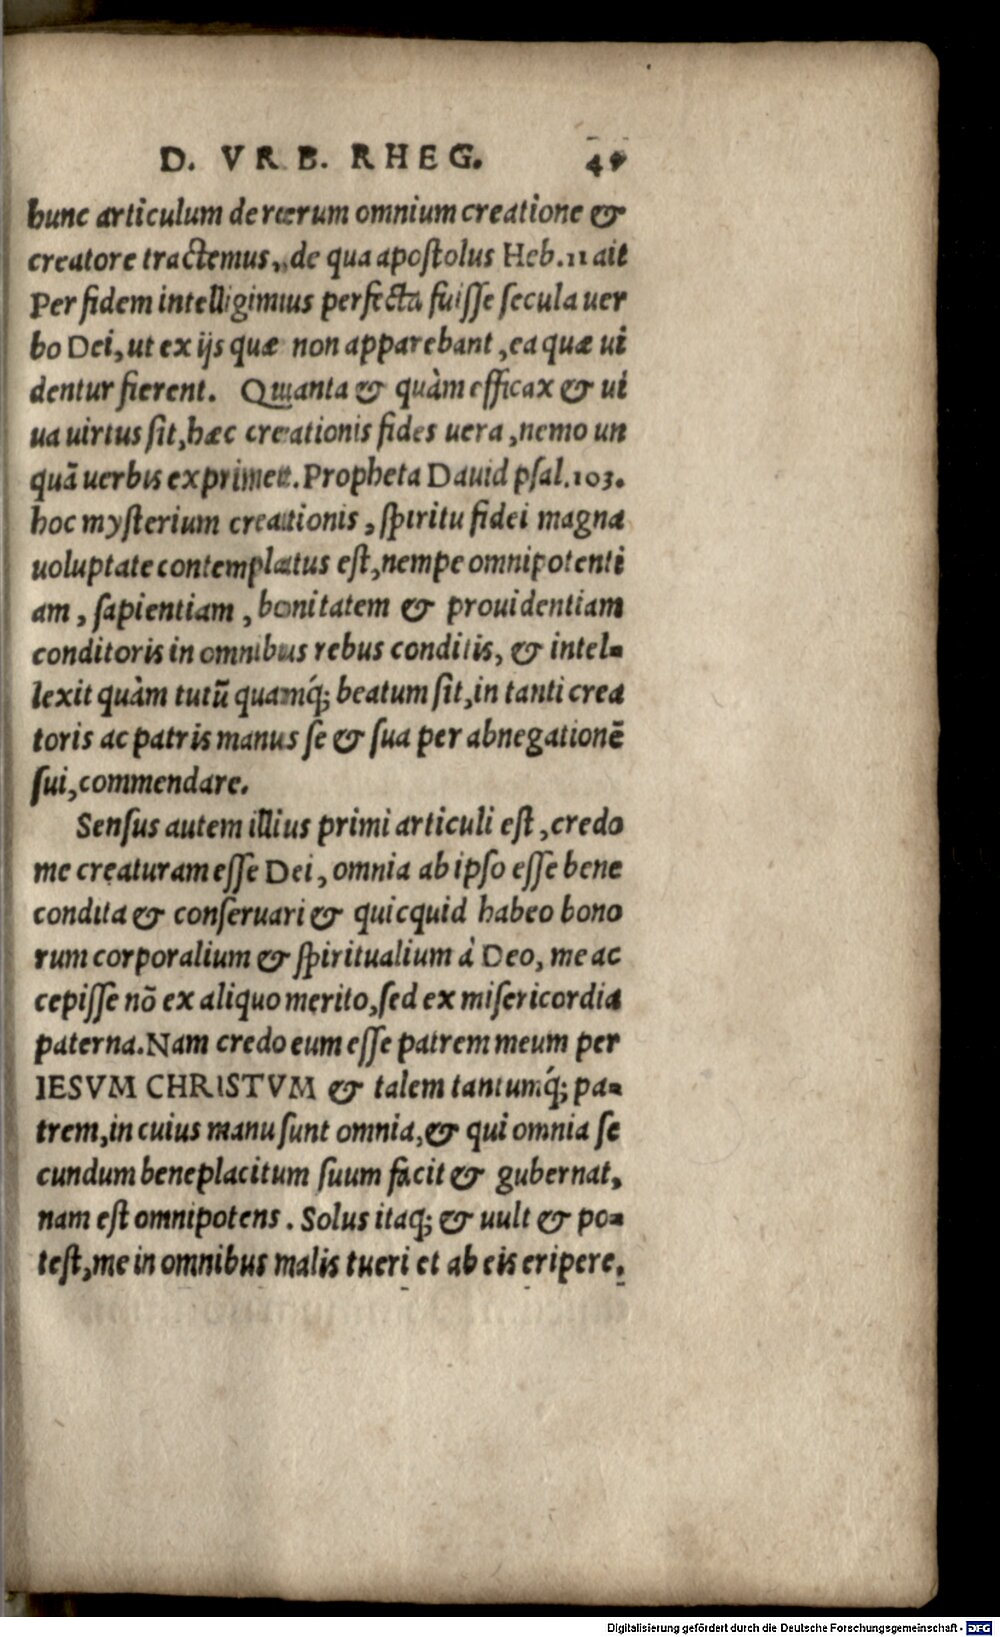 D. VRB. RHEG.
hunc articulum de rerum omnium creatione &
creatore tractemus, de qua apostolus Heb.11 ait
Per fidem intelligimus perfecta fuisse secula uer
bo Dei, ut ex ijs quæ non apparebant, ea quæ ui
dentur fierent. Quanta & quàm efficax & ui
ua uirtus sit, hæc creationis fides uera, nemo un
quā uerbis exprimet. Propheta Dauid psal.103.
hoc mysterium creationis, spiritu fidei magna
uoluptate contemplatus est, nempe omnipotenti
am, sapientiam, bonitatem & prouidentiam
conditoris in omnibus rebus conditis, & intel-
lexit quàm tutū quamq́; beatum sit, in tanti crea
toris ac patris manus se & sua per abnegationē
sui, commendare.
Sensus autem illius primi articuli est, credo
me creaturam esse Dei, omnia ab ipso esse bene
condita & conseruari & quicquid habeo bono
rum corporalium & spiritualium à Deo, me ac
cepisse nō ex aliquo merito, sed ex misericordia
paterna. Nam credo eum esse patrem meum per
IESVM CHRISTVM & talem tantumq́; pa-
trem, in cuius manu sunt omnia, & qui omnia se
cundum beneplacitum suum facit & gubernat,
nam est omnipotens. Solus itaq; & uult & po-
test, me in omnibus malis tueri et ab eis eripere,
Digitalisierung gefördert durch die Deutsche Forschungsgemeinschaft - DFG